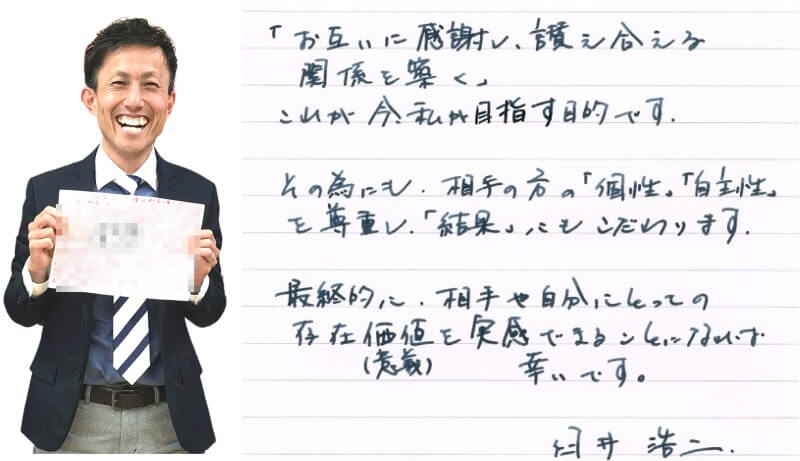 「お互いに感謝し、讃え合える
関係を築く」
これが今、私が目指す目的です。
その為にも、相手の方の「個性」「自主性」
を尊重し、「結果」にもこだわります。
最終的に、相手や自分にとっての
存在価値を実感できることになれば
(意義) 幸いです。
井 浩二